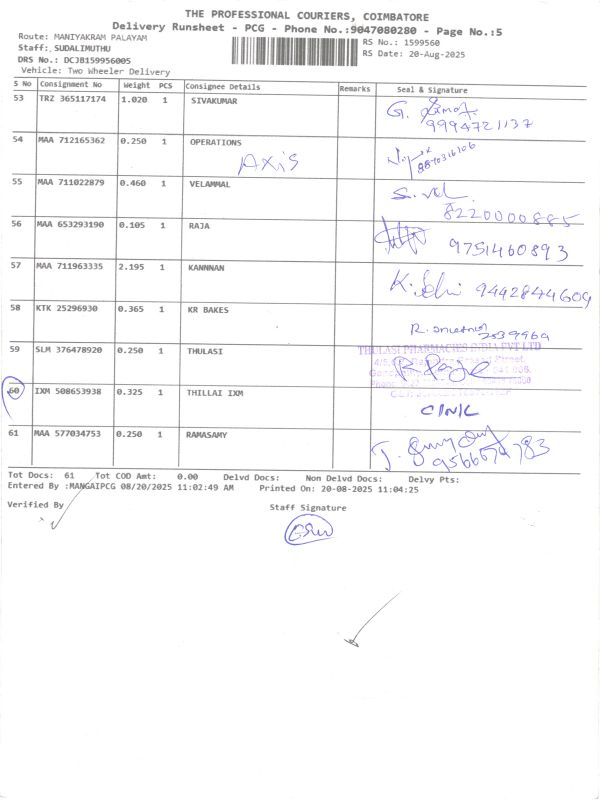 THE PROFESSIONAL COURIERS, COIMBATORE
Delivery Runsheet - PCG - Phone No.:9047080280 - Page No.:5
Route: MANIYAKRAM PALAYAM
RS No.: 1599560
Staff: SUDALIMUTHU
RS Date: 20-Aug-2025
DRS No.: DCJB159956005
Vehicle: Two Wheeler Delivery
S No Consignment No Weight PCS Consignee Details Remarks Seal & Signature
53 TRZ 365117174 1.020 1 SIVAKUMAR G.
9994721137
54 MAA 712165362 0.250 1 OPERATIONS
AXIS
55 MAA 711022879 0.460 1 VELAMMAL S. Vel
8220000885
56 MAA 653293190 0.105 1 RAJA 9751460893
57 MAA 711963335 2.195 1 KANNNAN K. 9442844609
58 KTK 25296930 0.365 1 KR BAKES R.
59 SLM 376478920 0.250 1 THULASI THULASI PHARMACIES INDIA PVT LTD
60 IXM 508653938 0.325 1 THILLAI IXM
61 MAA 577034753 0.250 1 RAMASAMY
Tot Docs: 61 Tot COD Amt: 0.00 Delvd Docs: Non Delvd Docs: Delvy Pts:
Entered By :MANGAIPCG 08/20/2025 11:02:49 AM Printed On: 20-08-2025 11:04:25
Verified By Staff Signature